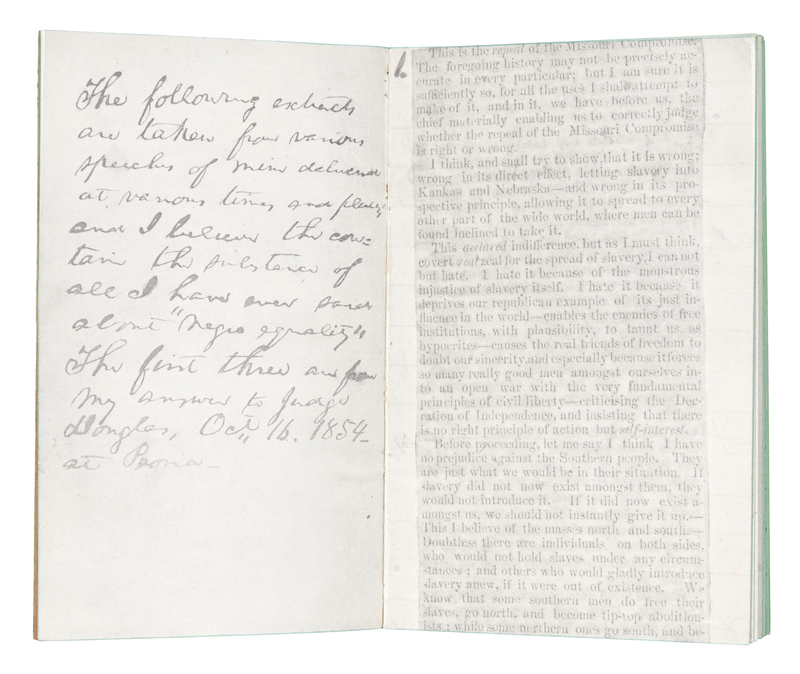 The following extracts
are taken from various
speeches of mine delivered
at various times and places,
and I believe they con-
tain the substance of
all I have ever said
about "negro equality"
The first three are from
my answer to Judge
Douglas, Oct. 16. 1854
at Peoria—
1.
This is the repeal of the Missouri Compromise.
The foregoing history may not be precisely ac-
curate in every particular; but I am sure it is
sufficiently so, for all the uses I shall attempt to
make of it, and in it, we have before us, the
chief materially enabling us to correctly judge
whether the repeal of the Missouri Compromise
is right or wrong.
I think, and shall try to show, that it is wrong;
wrong in its direct effect, letting slavery into
Kansas and Nebraska—and wrong in its pro-
spective principle, allowing it to spread to every
other part of the wide world, where men can be
found inclined to take it.
This declared indifference, but as I must think,
covert real zeal for the spread of slavery, I can not
but hate. I hate it because of the monstrous
injustice of slavery itself. I hate it because it
deprives our republican example of its just in-
fluence in the world—enables the enemies of free
institutions, with plausibility, to taunt us as
hypocrites—causes the real friends of freedom to
doubt our sincerity, and especially because it forces
so many really good men amongst ourselves in-
to an open war with the very fundamental
principles of civil liberty—criticising the Dec-
ration of Independence, and insisting that there
is no right principle of action but self-interest.
Before proceeding, let me say I think I have
no prejudice against the Southern people. They
are just what we would be in their situation. If
slavery did not now exist amongst them, they
would not introduce it. If it did now exist a-
mongst us, we should not instantly give it up.—
This I believe of the masses north and south.—
Doubtless there are individuals on both sides,
who would not hold slaves under any circum-
stances; and others who would gladly introduce
slavery anew, if it were out of existence. We
know that some southern men do free their
slaves, go north, and become tip-top abolition-
ists; while some northern ones go south, and be-